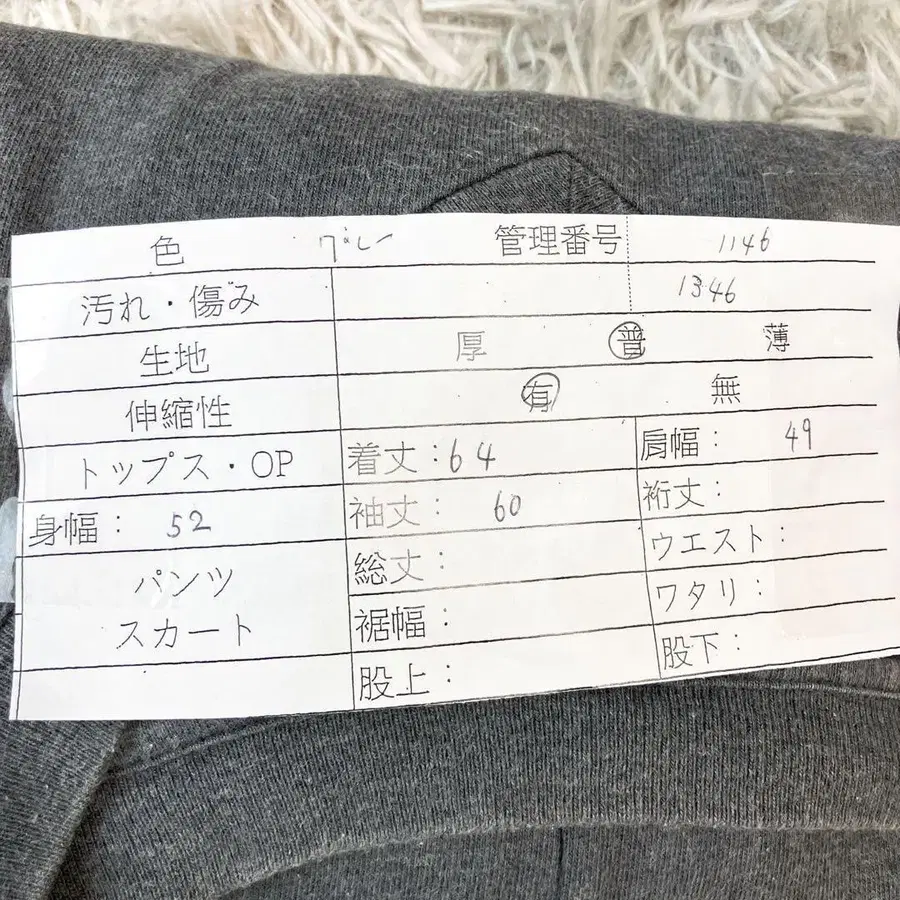 色 グレー 管理番号 1146
汚れ・傷み 1346
生地 厚 普 薄
伸縮性 有 無
トップス・OP 着丈：64 肩幅： 49
身幅： 52 袖丈： 60 裄丈：
パンツ 総丈： ウエスト：
スカート 裾幅： ワタリ：
股上： 股下：